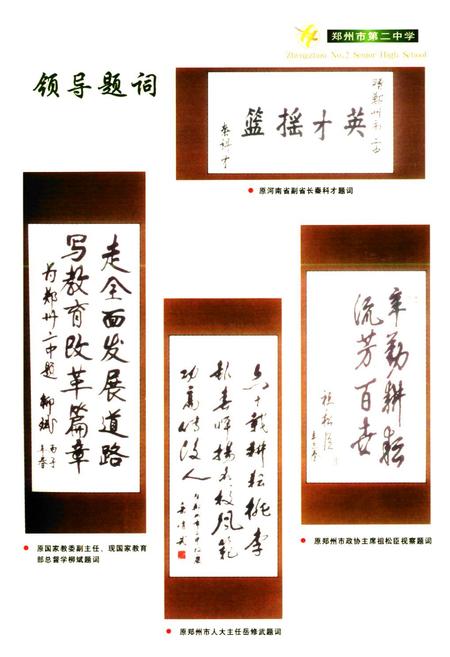 郑州市第二中学
Zhengzhou No.2 Senior High School
领导题词
赠郑州市二中
英才摇篮
秦科才
原河南省副省长秦科才题词
走全面发展道路
写教育改革篇章
为郑州二中题 柳斌 丙子年春
原国家教委副主任、现国家教育
部总督学柳斌题词
六十载耕耘桃李
功高传后人
岳修武
原郑州市人大主任岳修武题词
辛勤耕耘
流芳百世
祖松臣
原郑州市政协主席祖松臣视察题词